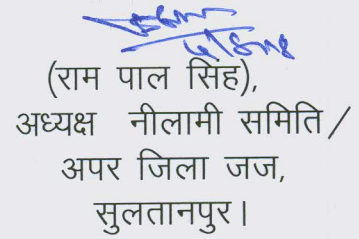 (राम पाल सिंह),
अध्यक्ष नीलामी समिति /
अपर जिला जज,
सुलतानपुर।